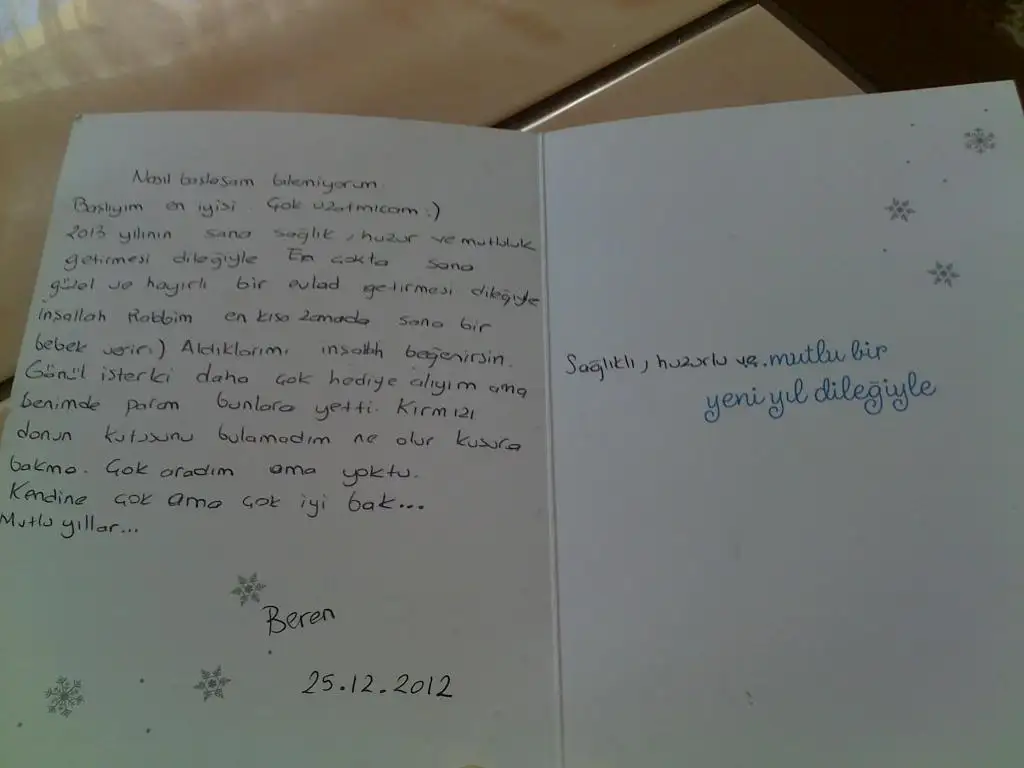 Nasıl başlasam bilemiyorum
Başlıyım en iyisi. Çok uzatmıcam :)
2013 yılının sana sağlık, huzur ve mutluluk
getirmesi dileğiyle En çokta sana
güzel ve hayırlı bir evlad getirmesi dileğiyle
inşallah Rabbim en kısa zamada sana bir
bebek verir:) Aldıklarımı inşallah beğenirsin.
Gönül isterki daha çok hediye alıyım ama
benimde param bunlara yetti. Kırmızı
donun kutusunu bulamadım ne olur kusura
bakma. Çok aradım ama yoktu.
Kendine çok ama çok iyi bak...
Mutlu yıllar...
Beren
25.12.2012
Sağlıklı, huzurlu ve mutlu bir
yeni yıl dileğiyle